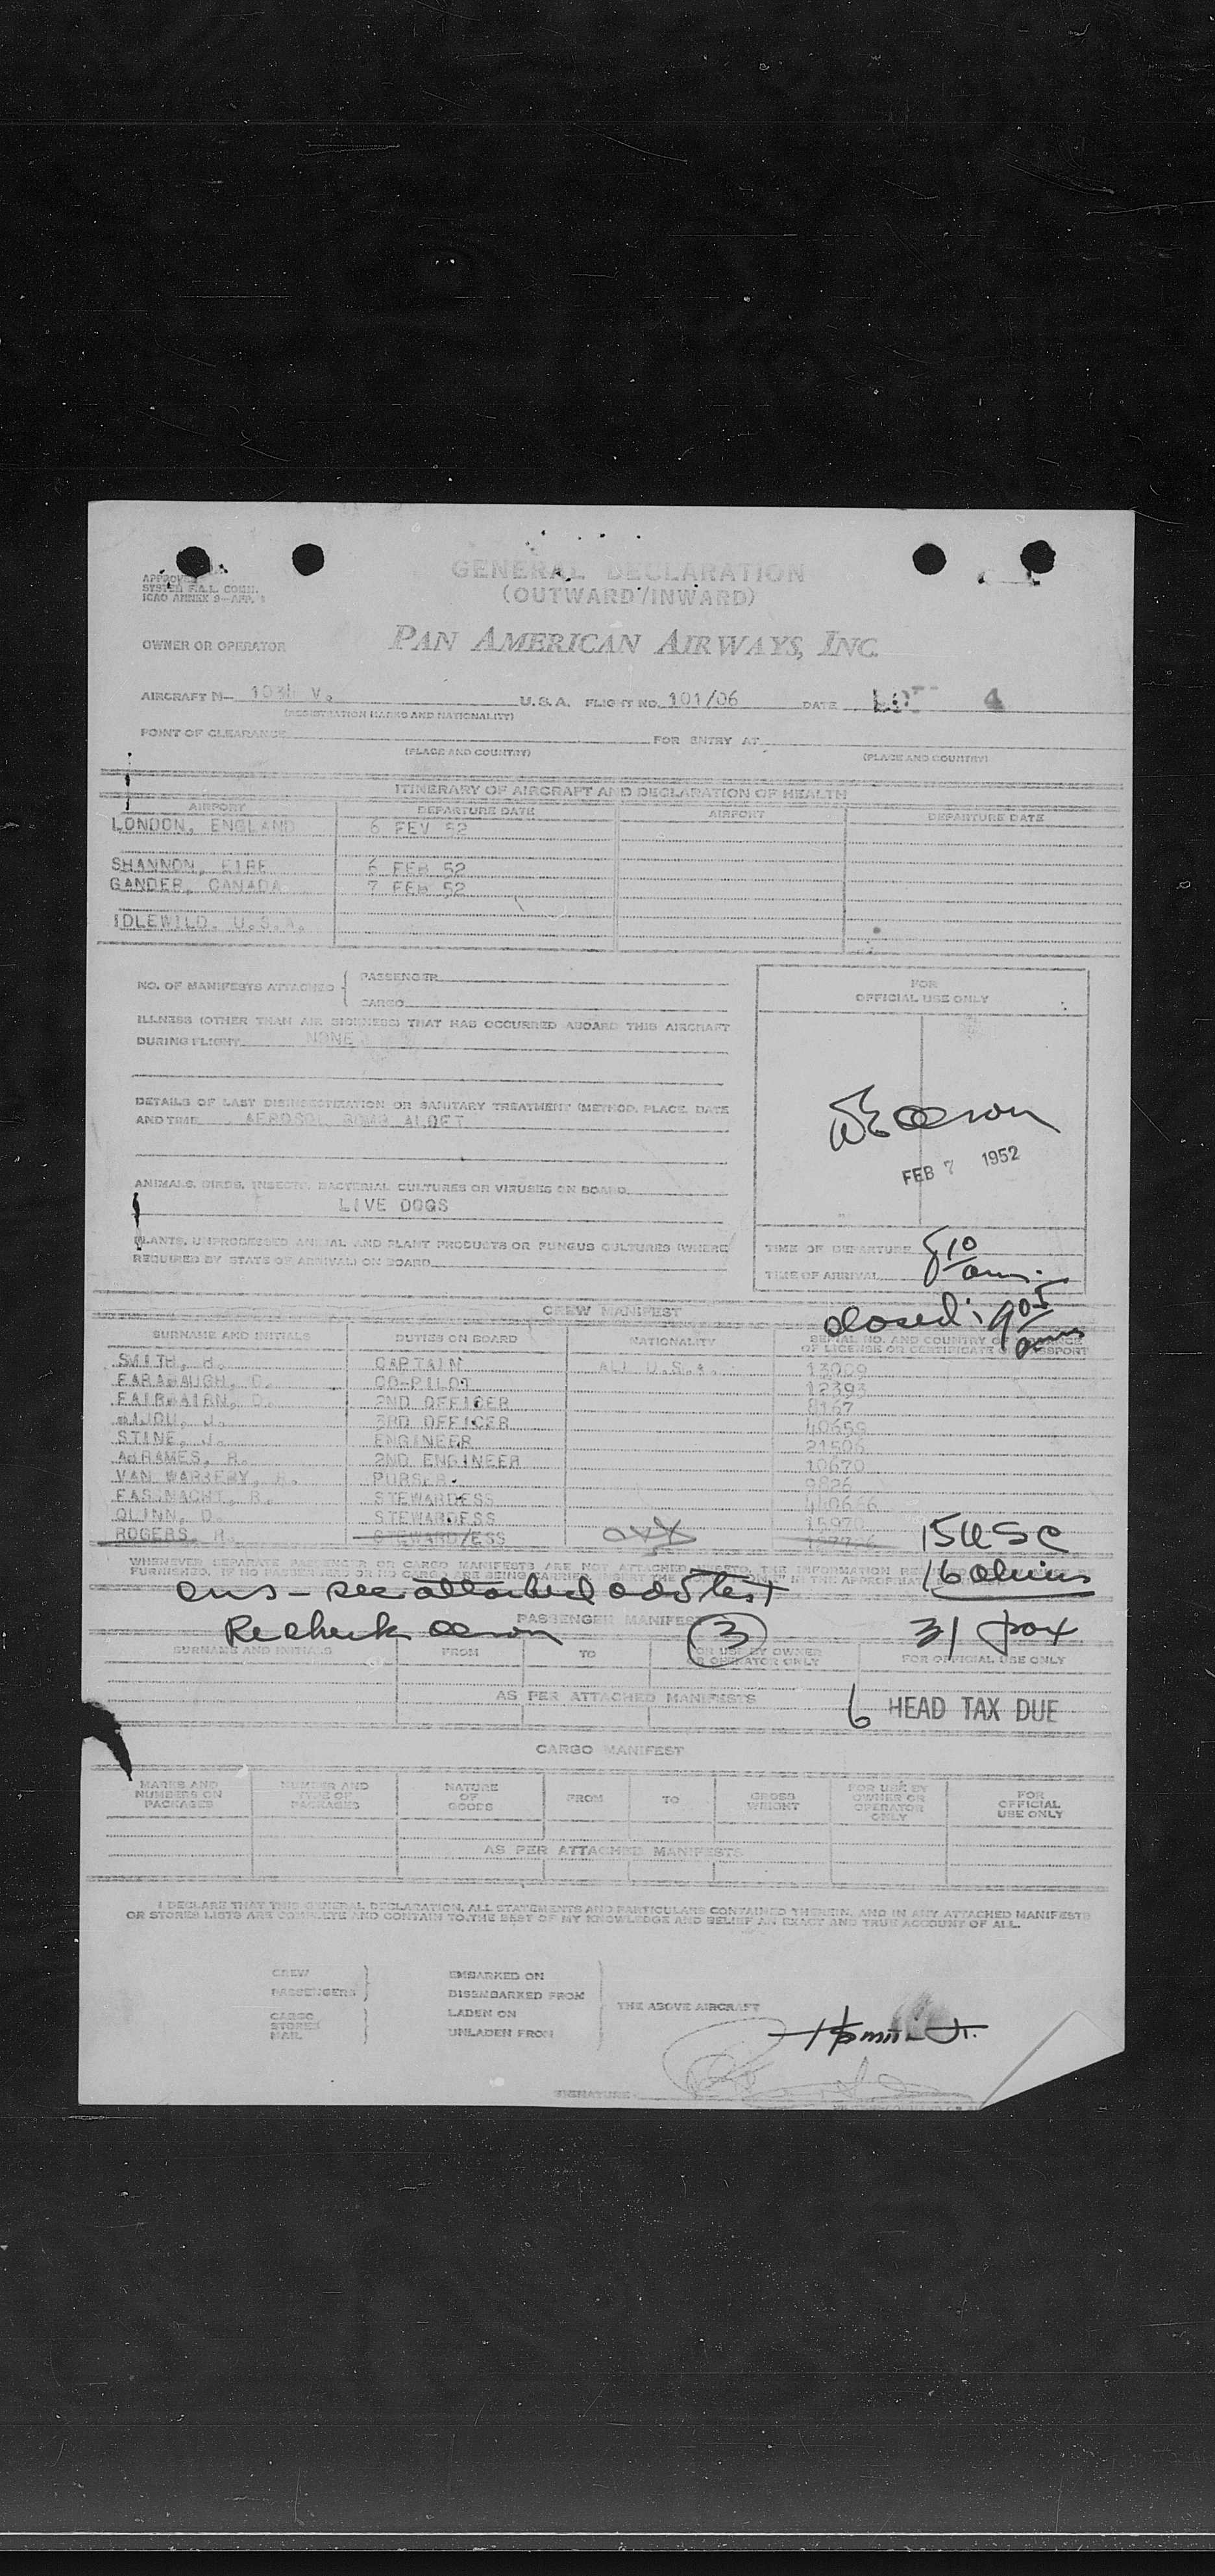 GENERAL DECLARATION
(OUTWARD/INWARD)
APPROVED
SYSTEM F.A.L. COMM.
ICAO ANNEX 9—APP. 1
OWNER OR OPERATOR PAN AMERICAN AIRWAYS, INC.
AIRCRAFT N— V. U.S.A. FLIGHT NO. 101/06 DATE LOT 4
(REGISTRATION MARKS AND NATIONALITY)
POINT OF CLEARANCE FOR ENTRY AT
(PLACE AND COUNTRY) (PLACE AND COUNTRY)
ITINERARY OF AIRCRAFT AND DECLARATION OF HEALTH
AIRPORT DEPARTURE DATE AIRPORT DEPARTURE DATE
LONDON, ENGLAND 6 FEV 52
SHANNON, EIRE 6 FEB 52
GANDER, CANADA 7 FEB 52
IDLEWILD. U.S.A.
NO. OF MANIFESTS ATTACHED { PASSENGER
CARGO
ILLNESS (OTHER THAN AIR SICKNESS) THAT HAS OCCURRED ABOARD THIS AIRCRAFT
DURING FLIGHT NONE
DETAILS OF LAST DISINSECTIZATION OR SANITARY TREATMENT (METHOD, PLACE, DATE
AND TIME AEROSOL BOMB
ANIMALS, BIRDS, INSECTS, BACTERIAL CULTURES OR VIRUSES ON BOARD
LIVE DOGS
PLANTS, UNPROCESSED ANIMAL AND PLANT PRODUCTS OR FUNGUS CULTURES (WHERE
REQUIRED BY STATE OF ARRIVAL) ON BOARD
FOR
OFFICIAL USE ONLY
FEB 7 1952
TIME OF DEPARTURE 8 10
TIME OF ARRIVAL am.
closed: 9 05
CREW MANIFEST
SURNAME AND INITIALS DUTIES ON BOARD NATIONALITY SERIAL NO. AND COUNTRY OF
OF LICENSE OR CERTIFICATE PASSPORT
SMITH, H. CAPTAIN ALL U.S.A. 13009
FARABAUGH, D. CO-PILOT 12393
FAIRBAIRN, D. 2ND OFFICER 8167
BIJOU, J. 3RD OFFICER 40655
STINE, J. ENGINEER 21506
ABRAMES, R. 2ND ENGINEER 10670
VAN WARBERY, R. PURSER 9826
FASSNACHT, R. STEWARDESS
QUINN, D. STEWARDESS 15970
ROGERS, R. STEWARD/ESS
15 USC
16 aliens
WHENEVER SEPARATE PASSENGER OR CARGO MANIFESTS ARE NOT ATTACHED HERETO, THE INFORMATION
FURNISHED. IF NO PASSENGERS OR NO CARGO ARE BEING CARRIED
see attached
PASSENGER MANIFEST
Recheck 3 31 pax
SURNAME AND INITIALS FROM TO FOR USE BY OWNER
OR OPERATOR ONLY FOR OFFICIAL USE ONLY
AS PER ATTACHED MANIFESTS
6 HEAD TAX DUE
CARGO MANIFEST
MARKS AND
NUMBERS ON
PACKAGES
NUMBER AND
TYPE OF
PACKAGES
NATURE
OF
GOODS
FROM
TO
GROSS
WEIGHT
FOR USE BY
OWNER OR
OPERATOR
ONLY
FOR
OFFICIAL
USE ONLY
AS PER ATTACHED MANIFESTS
I DECLARE THAT THIS GENERAL DECLARATION, ALL STATEMENTS AND PARTICULARS CONTAINED THEREIN, AND IN ANY ATTACHED MANIFESTS
OR STORES LISTS ARE COMPLETE AND CONTAIN TO THE BEST OF MY KNOWLEDGE AND BELIEF AN EXACT AND TRUE ACCOUNT OF ALL.
CREW
PASSENGERS
CARGO
STORES
MAIL
EMBARKED ON
DISEMBARKED FROM
LADEN ON
UNLADEN FROM
THE ABOVE AIRCRAFT
SIGNATURE